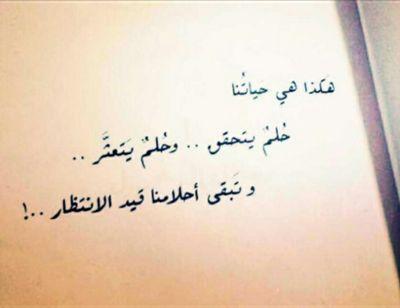 هَكذا هي حَياتُنا
حُلمٌ يتحقق .. وحُلمٌ يَتعثَّر ..
و تَبقى أحلامنا قيد الانتظار ..!